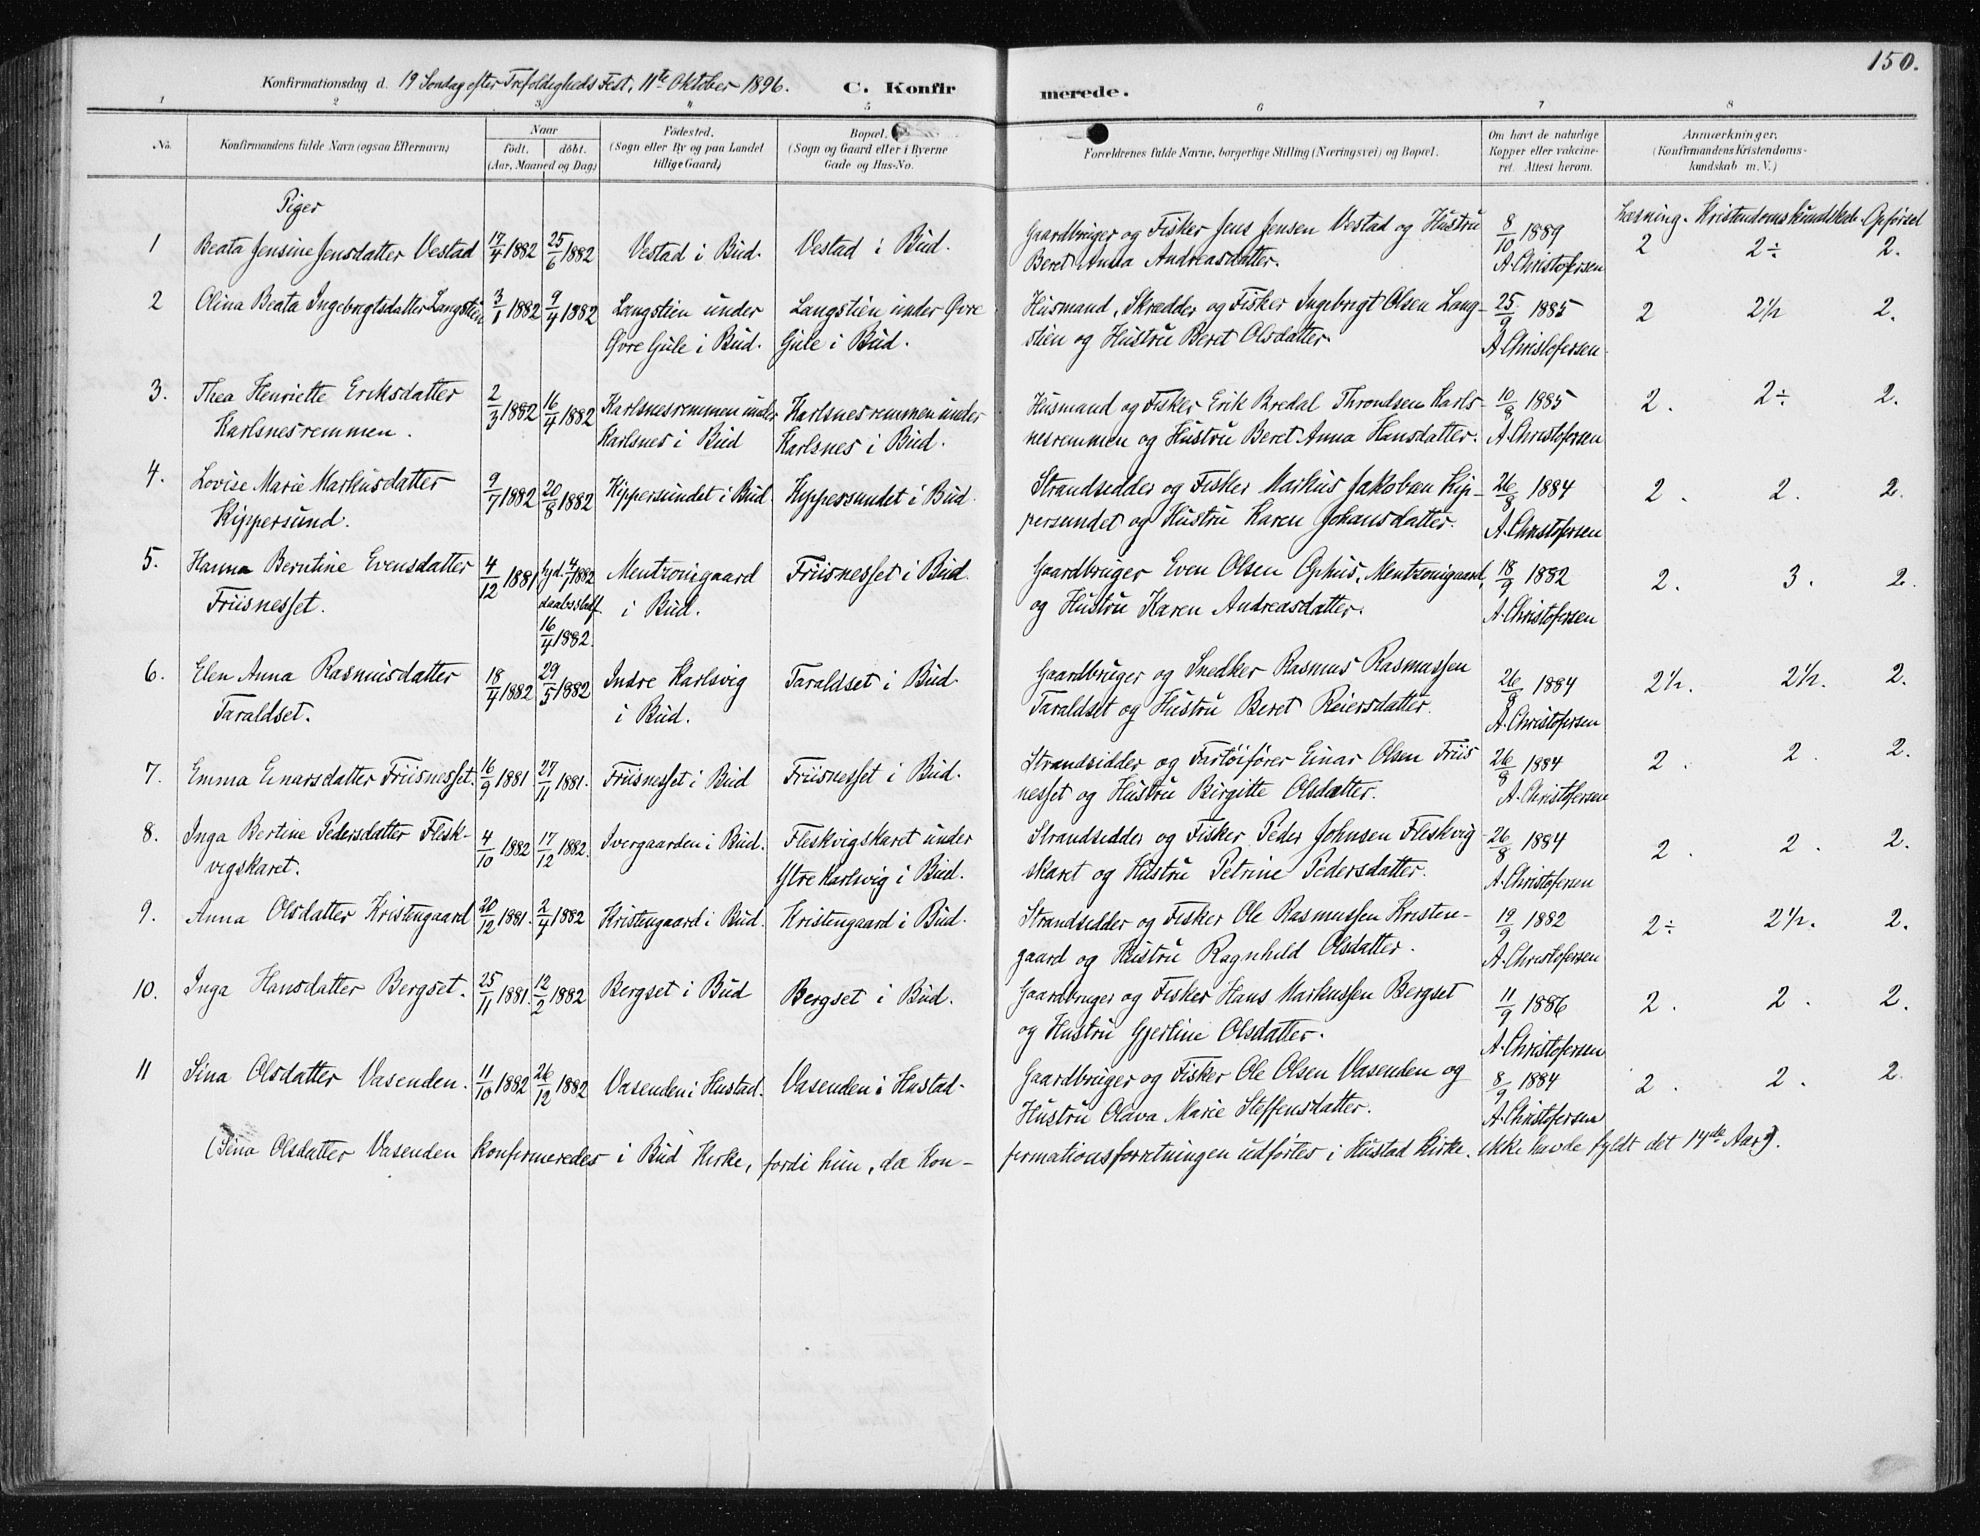 150.
Konfirmationsdag d. 19 Søndag efter Trefoldigheds Fest, 11te Oktober 1896. C. Konfirmerede.
1 2 3 4 5 6 7 8
No. Konfirmandens fulde Navn (ogsaa Efternavn) Naar født. døbt. (Aar, Maaned og Dag) Fødested. (Sogn eller By og paa Landet tillige Gaard) Bopæl. (Sogn og Gaard eller i Byerne Gade og Hus-No. Forældrenes fulde Navne, borgerlige Stilling (Næringsvei) og Bopæl. Om havt de naturlige Kopper eller vakcineret. Attest herom. Anmærkninger, (Konfirmandens Kristendomskundskab m. V.)
Piger
Læsning. Kristendomskundskab. Opførsel
1 Beata Jensine Jensdatter Vestad 17/4 1882 25/6 1882 Vestad i Bud. Vestad i Bud. Gaardbruger og Fisker Jens Jensen Vestad og Hustru 8/10 1889 2 2÷ 2.
Beret Anna Andreasdatter. A. Christofersen
2 Olina Beata Ingebrigtsdatter Langstien 3/1 1882 9/4 1882 Langstien under Langstien under Øvre Husmand, Skrædder og Fisker Ingebrigt Olsen Lang- 25/9 1885 2 2½ 2.
Øvre Gule i Bud. Gule i Bud. stien og Hustru Beret Olsdatter. A. Christofersen
3. Thea Henriette Eriksdatter 2/3 1882 16/4 1882 Karlsnesremmen under Karlsnesremmen under Husmand og Fisker Erik Bredal Throndsen Karls- 10/8 1885 2. 2÷ 2.
Karlsnesremmen. Karlsnes i Bud Karlsnes i Bud. nesremmen og Hustru Beret Anna Hansdatter. A. Christofersen
4. Lovise Marie Markusdatter 9/7 1882 20/8 1882 Kippersundet i Bud. Kippersundet i Bud. Strandsedder og Fisker Markus Jakobsen Kip- 26/8 1884 2. 2. 2.
Kippersund. persundet og Hustru Karen Johansdatter. A. Christofersen
5. Hanna Berntine Evensdatter 4/12 1881 hjd. 4/7 1882 Mentzonigaard Friisnesset i Bud. Gaardbruger Even Olsen Ophus, Mentzonigaard, 18/9 1882 2. 3. 2.
Friisnesset. daabsstadf. 16/4 1882. i Bud. og Hustru Karen Andreasdatter. A. Christofersen
6. Elen Anna Rasmusdatter 18/4 1882 29/5 1882 Indre Karlsvig Taraldset i Bud. Gaardbruger og Snedker Rasmus Rasmussen 26/8 1884 2½. 2½. 2.
Taraldset. i Bud. Taraldset og Hustru Beret Reiersdatter. A. Christofersen
7. Emma Einarsdatter Friisnesset. 16/9 1881 27/11 1881. Friisnesset i Bud Friisnesset i Bud. Strandsidder og Fartøifører Einar Olsen Friis 26/8 1884 2. 2. 2.
nesset og Hustru Birgitte Olsdatter. A. Christofersen
8. Inga Bertine Pedersdatter Flesk- 4/10 1882 17/12 1882. Ivergaarden i Bud. Fleskvigskaret under Strandsedder og Fisker Peder Johnsen Fleskvig- 26/8 1884 2. 2. 2.
vigskaret. Ytre Karlsvig i Bud. skaret og Hustru Petrine Pedersdatter. A. Christofersen
9. Anna Olsdatter Kristengaard 20/12 1881. 2/4 1882 Kristengaard i Bud. Kristengaard i Bud. Strandsedder og Fisker Ole Rasmussen Kristen- 19/9 1882 2÷ 2½. 2.
gaard og Hustru Ragnhild Olsdatter. A. Christofersen
10. Inga Hansdatter Bergset. 25/11 1881. 12/2 1882 Bergset i Bud Bergset i Bud. Gaardbruger og Fisker Hans Markussen Bergset 11/9 1886 2. 2. 2.
og Hustru Gjertine Olsdatter. A. Christofersen
11 Sina Olsdatter Vasenden. 11/10 1882 26/12 1882 Vasenden i Hustad. Vasenden i Hustad. Gaardbruger og Fisker Ole Olsen Vasenden og 8/9 1884 2. 2. 2.
Hustru Olava Marie Steffensdatter. A. Christofersen
(Sina Olsdatter Vasenden konfirmeredes i Bud Kirke, fordi hun, da Kon- firmationsforretningen udførtes i Hustad Kirke, ikke havde fyldt det 14de Aar).